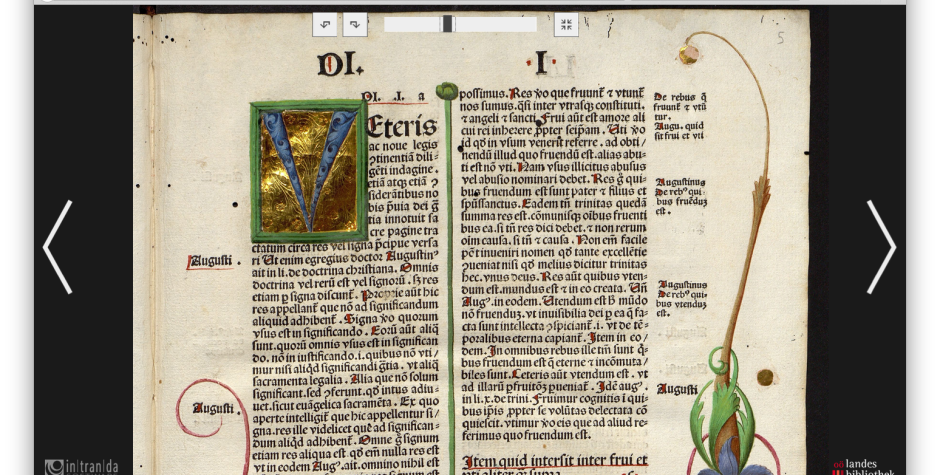 DI.
I
5
DI. .I. a
VEteris
ac noue legis
ꝯtinentiā dili-
gēti indagine.
etiā atqꝫ etiā ꝯ
siderātibus no
bis p̄uia dei g̃
tia innotuit sa
cre pagine tra
ctatum circa res vel signa p̄cipue versa
ri Ut enim egregius doctor Augustinꝰ
ait in li. de doctrina christiana. Omnis
doctrina vel reꝝ est vel signoꝝ. sꝫ res
etiam ꝑ signa discunt᷑. Proprie aūt hic
res appellant᷑ que nō ad significandum
aliquid adhibent᷑. Signa ꝟo quorum
vsus est in significando. Eoꝝ aūt aliq̄
sunt. quoꝝ omnis vsus est in significan
do. nō in iustificando. i. quibus nō vti/
mur nisi aliqd̄ significandi gr̄tia. vt aliq̄
sacramenta legalia. Alia que nō solum
significant. sed ꝯferunt. qd̄ intus adiu-
uet. sicut euāgelica sacramēta. Ex quo
aperte intelligit᷑ que hic appellentur si/
gna. res ille videlicet que ad significan-
dum aliqd̄ adhibent᷑. Omne g̊ signum
est res aliqua
vt in eodem Augꝰ. ait. omnino nihil est
possimus. Res ꝟo que fruunt᷑ ⁊ vtunt᷑
nos sumus. q̄si inter vtrasqꝫ constituti.
⁊ angeli ⁊ sancti. Frui aūt est amore ali
cui rei inherere ꝓpter seip̄am. Uti ꝟo
id qd̄ in vsum venerit referre. ad obti/
nendū illud quo fruendū est. alias abu-
ti est nō vti. Nam vsus illicitus abusus
vel abusio nominari debet. Res g̊ qui-
bus fruendum est sunt pater ⁊ filius et
sp̄ussanctus. Eadem tn̄ trinitas quedā
summa res est. cōmunisqꝫ oībus fruenti
bus ea. si tn̄ res dici debet. ⁊ non rerum
oim causa. si tn̄ ⁊ causa. Non em̄ facile
pōt inueniri nomen qd̄ tante excellētie
ꝯueniat nisi qd̄ melius dicitur trinitas
hec. vnus deus. Res aūt quibus vten-
dum est. mundus est ⁊ in eo creata. Uñ
Augꝰ. in eodem. Utendum est h̄ mūdo
nō fruenduꝫ. vt inuisibilia dei ꝑ ea q̄ fa-
cta sunt intellecta ꝯspiciant᷑. i. vt de tē-
poralibus eterna capiant᷑. Item in eo/
dem. In omnibus rebus ille tm̄ sunt q̄-
bus fruendum est q̄ eterne ⁊ incōmuta/
biles sunt. Ceteris aūt vtendum est. vt
ad illarū ꝑfruitōꝫ ꝑueniat᷑. Idē augꝰ.
in li. x. de trini. Fruimur cognitis ī qui-
bus ip̄is ꝓpter se volūtas delectata cō
quiescit. vtimur ꝟo eis que ad aliud re-
ferimus quo fruendum est.
Item quid intersit inter frui et
vti aliter ꝙ supra
De rebus q̄
fruunt᷑ ⁊ vtū
tur.
Augu. quid
sit frui ⁊ vti
Augustinus
De rebꝰ qui-
bus fruēduꝫ
est.
Augustinus
De rebꝰ qui-
bus vtenduꝫ
est.
Augusti
Augusti.
Augusti.
in|tran|da
oö landes
bibliothek